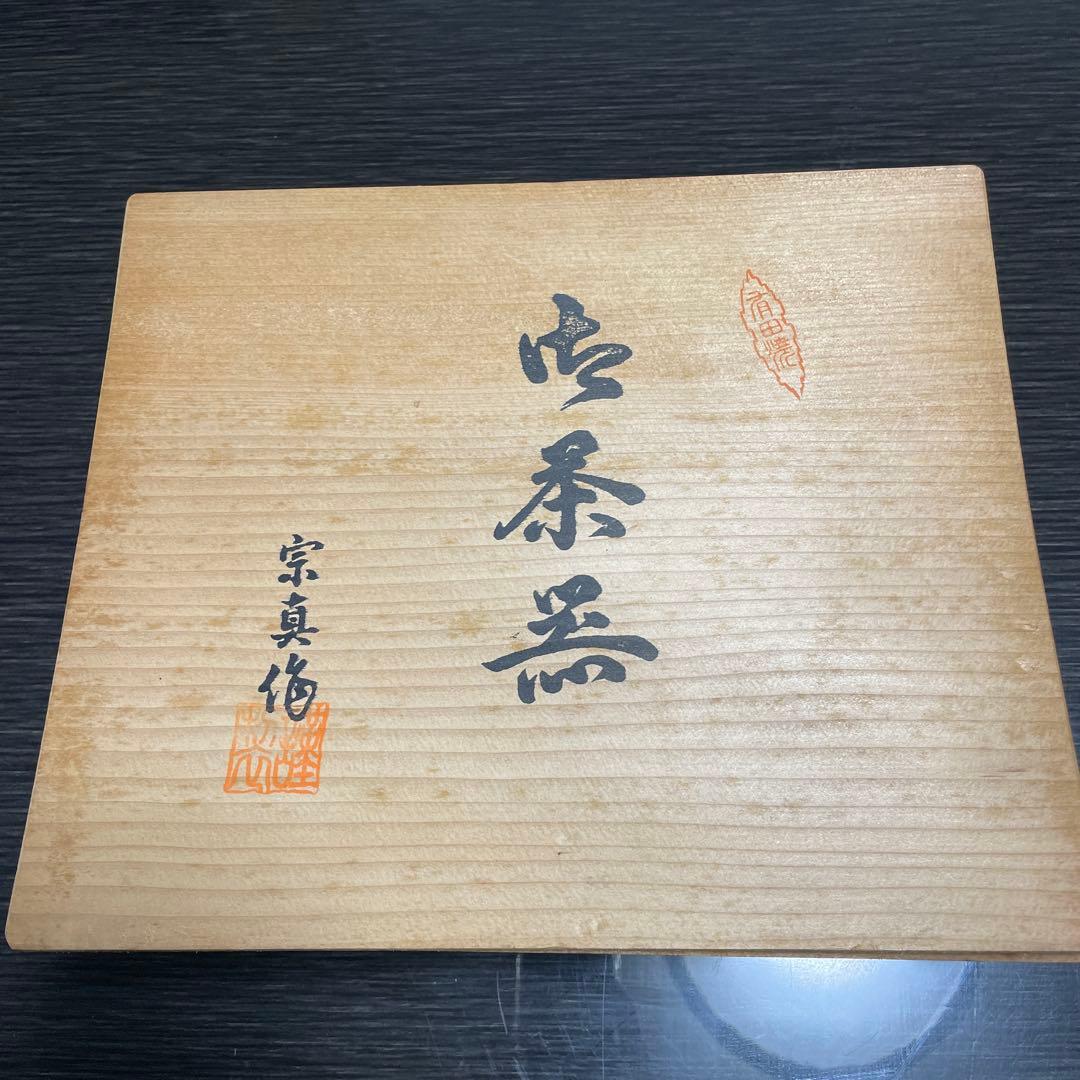 有田焼
御茶器
宗真